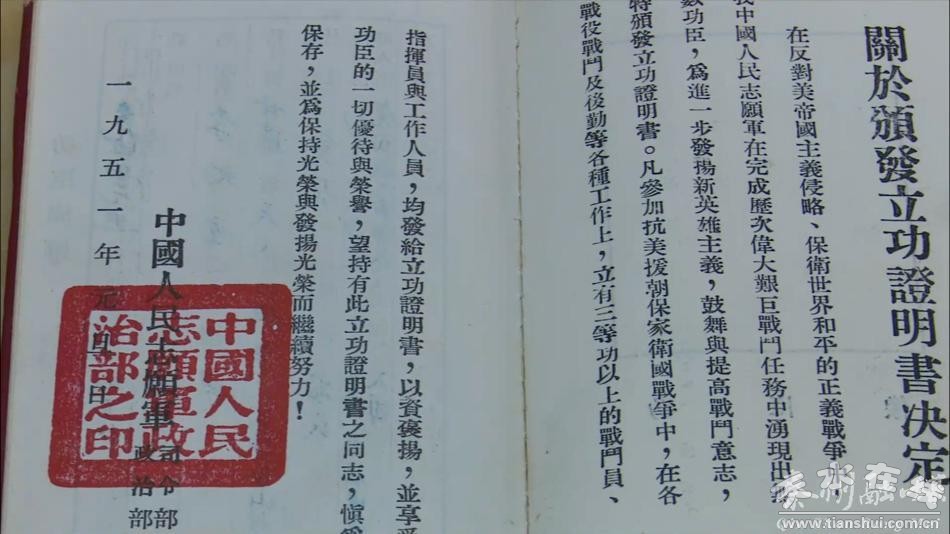 關於頒發立功證明書決定
在反對美帝國主義侵略、保衛世界和平的正義戰爭
我中國人民志願軍在完成歷次偉大艱巨戰鬥任務中湧現出
數功臣，爲進一步發揚新英雄主義，鼓舞與提高戰鬥意志，
特頒發立功證明書。凡參加抗美援朝保家衛國戰爭中，在各
戰役戰鬥及後勤等各種工作上，立有三等功以上的戰鬥員、
指揮員與工作人員，均發給立功證明書，以資褒揚，並享
功臣的一切優待與榮譽，望持有此立功證明書之同志，愼
保存，並爲保持光榮與發揚光榮而繼續努力！
中國人民志願軍司令部
政治部
一九五一年元月日
中國人民
志願軍政
治部之印
天水在线
(www.tianshui.com.cn)